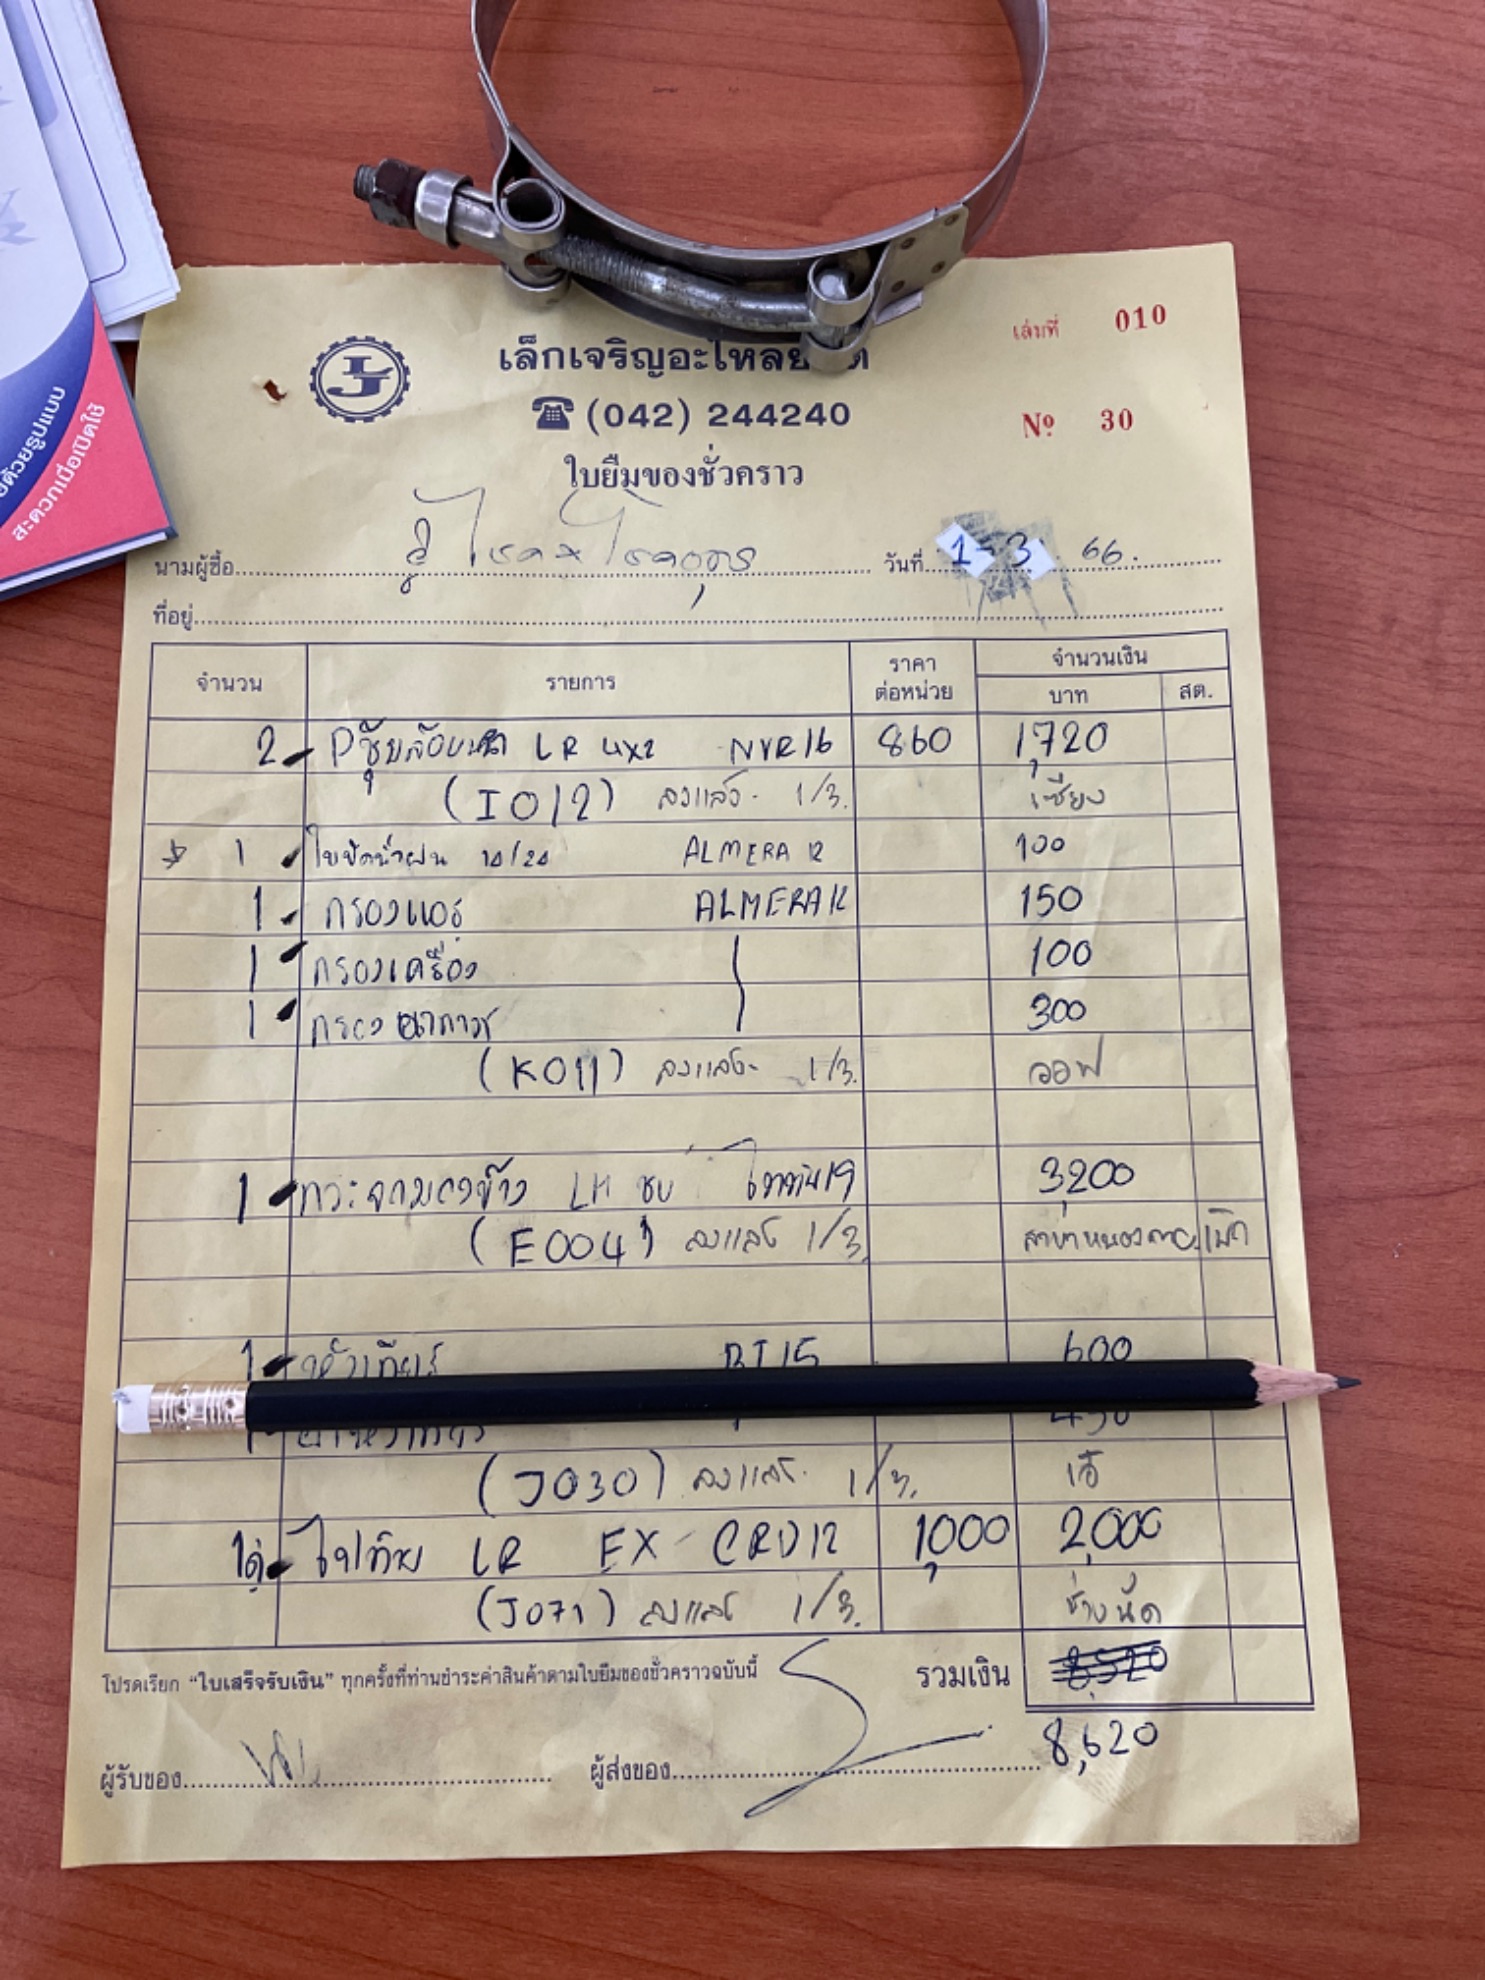 ด้วยรูปแบบ
สะดวกเมื่อเปิดใช้
เล่มที่ 010
เล็กเจริญอะไหล่ย
(042) 244240
Nº 30
ใบยืมของชั่วคราว
นามผู้ซื้อ อู่ วันที่ 1-3 66.
ที่อยู่
จำนวน รายการ ราคาต่อหน่วย จำนวนเงิน
บาท สต.
2 LR 4x2 NVR16 860 1,720
(I012) ลงแล้ว 1/3. เซียง
1 ใบปัดน้ำฝน 14/24 ALMERA 12 100
1 กรองแอร์ ALMERA12 150
1 กรองเครื่อง 100
1 กรองอากาศ 300
(K011) ลงแล้ว 1/3. ออฟ
1 กระจกมองข้าง LH 19 3,200
(E004) ลงแล้ว 1/3. สาขาหนองคาย
1 หัวเทียน BT15 600
1 450
(J030) ลงแล้ว 1/3. เอ้
1คู่ ไฟท้าย LR EX-CRV12 1,000 2,000
(J071) ลงแล้ว 1/3. ช่างนัด
โปรดเรียก “ใบเสร็จรับเงิน” ทุกครั้งที่ท่านชำระค่าสินค้าตามใบยืมของชั่วคราวฉบับนี้ รวมเงิน 8,520
8,620
ผู้รับของ ผู้ส่งของ